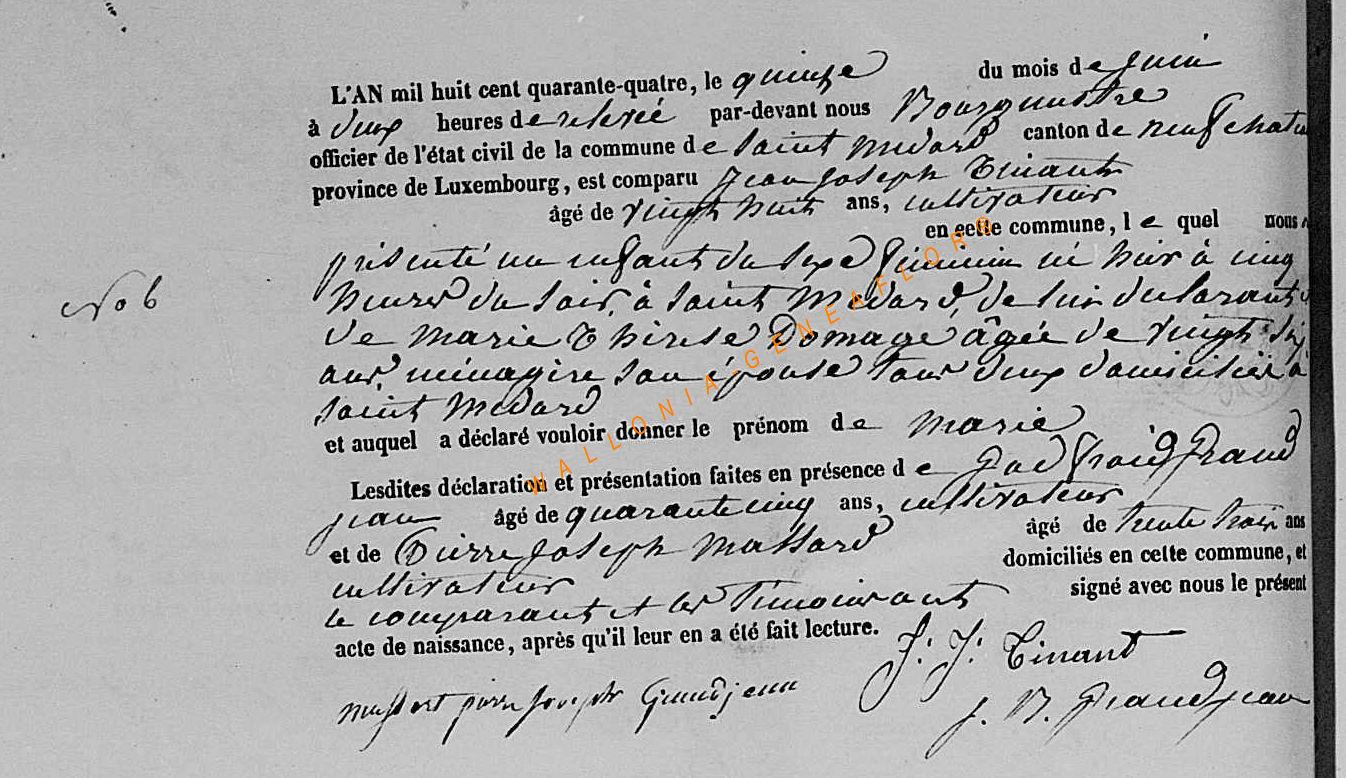 L'AN mil huit cent quarante-quatre, le quinze du mois de juin
à deux heures de relevée par-devant nous Bourgmestre
officier de l'état civil de la commune de Saint Médard canton de neufchateau
province de Luxembourg, est comparu Jean Joseph Tinant
âgé de vingt huit ans, cultivateur
en cette commune, le quel nous a
présenté un enfant du sexe féminin né hier à cinq
heures du soir, à Saint Médard, de lui déclarant et
de Marie Thérèse Domage âgée de vingt six
ans, ménagère son épouse tous deux domiciliés à
Saint Médard
No 6
et auquel a déclaré vouloir donner le prénom de Marie
Lesdites déclaration et présentation faites en présence de Grand
jean âgé de quarante cinq ans, cultivateur
et de Pierre Joseph Massard âgé de trente trois ans
cultivateur domiciliés en cette commune, et
le comparant et les témoins ont signé avec nous le présent
acte de naissance, après qu'il leur en a été fait lecture.
J. J. Tinant
pierre joseph Grandjean
J. N. Grandjean
WALLONIA-GENEAFLORE